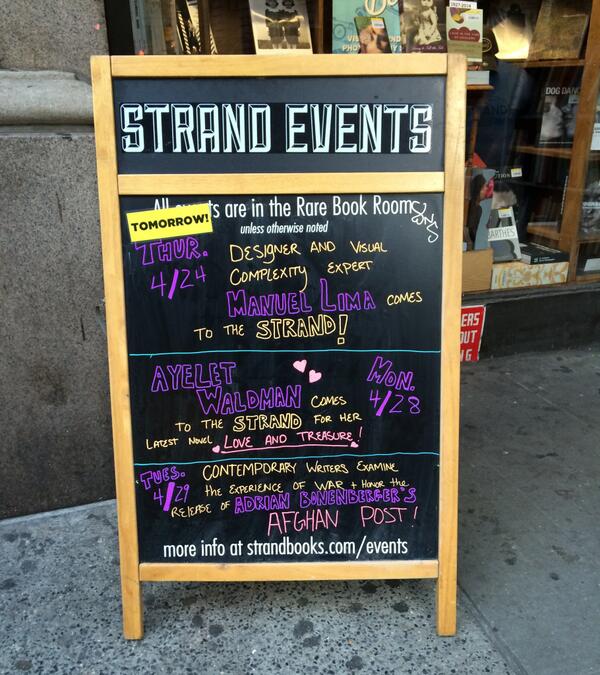 STRAND EVENTS
All events are in the Rare Book Room
unless otherwise noted
TOMORROW!
THUR. 4/24
DESIGNER AND VISUAL
COMPLEXITY EXPERT
MANUEL LIMA COMES
TO THE STRAND!
AYELET
WALDMAN COMES
MON. 4/28
TO THE STRAND FOR HER
LATEST NOVEL LOVE AND TREASURE!
TUES. 4/29
CONTEMPORARY WRITERS EXAMINE
THE EXPERIENCE OF WAR + HONOR THE
RELEASE OF ADRIAN BONENBERGER'S
AFGHAN POST!
more info at strandbooks.com/events
1927-2014
DOG DANC
ARTHES
ERS
OUT
G